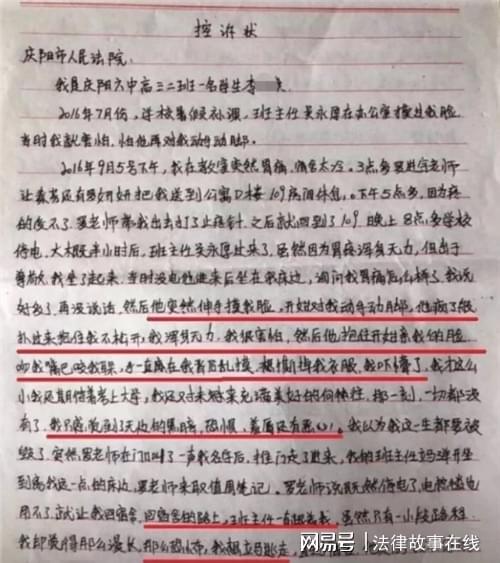 控诉状
庆阳市人民法院:
我是庆阳六中高三二班一名学生李 奕
2016年7月份,学校暑假补课,班主任吴永厚在办公室摸过我脸
当时我就害怕,怕他再对我动手动脚。
2016年9月5号下午,我在教室突然胃疼,痛苦太冷。3点多罗进宫老师
让秦 把我送到公寓D楼109房间休息。下午5点多,因为疼
的受不了,罗老师带我出去打了止疼针,之后就回到了109晚上8点多学校
停电,大概半小时后,班主任吴永厚进来了,虽然因为胃疼浑身无力,但出于
尊敬,我坐了起来,当时没电他进来后坐在我床边,询问我胃病怎么样了,我说
好多了,再没说话,然后他突然伸手摸我脸,开始对我动手动脚,他疯了般
扑过来抱住我不松开,我浑身无力,我很害怕,然后他抱住开始亲我的脸
吻我嘴巴咬我耳朵,手一直在我背后乱摸,想撕掉我衣服,我吓懵了,我才这么
小我还期待着考上大学,我还对未来充满美好的向往,那一刻,一切都没
有了,我只感觉到了无边的黑暗,恐惧,羞辱还有恶心。我以为我这一生都要被
毁了,突然罗老师在门口叫了一声我名字后,推门走了进来,我的班主任立马弹开坐
到离我远一点的床边,罗老师来取值周笔记,罗老师说既然停电了,电热毯也
用不了,就让我回宿舍,回宿舍的路上,班主任一直跟着我,虽然只有一小段路程
我却觉得那么漫长,那么恐怖,我想立马逃走
网易号 法律故事在线